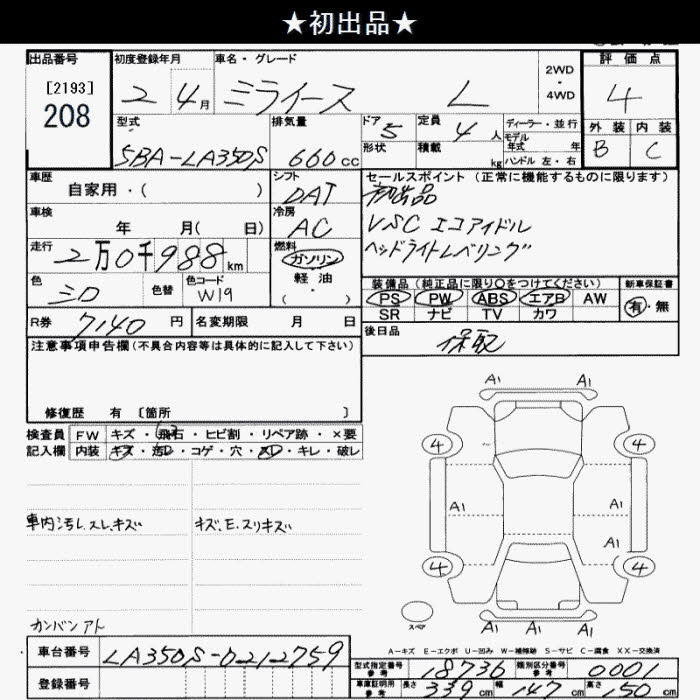 ★初出品★
出品番号 初度登録年月 車名・グレード 2WD・4WD 評価点
[2193]
208
2 4月 ミライース L 4
型式 排気量 ドア 5 定員 4人 ディーラー・並行 外装 内装
5BA-LA350S 660cc 形状 積載 kg モデル年式 年 ハンドル 左・右 B C
車歴 シフト セールスポイント(正常に機能するものに限ります)
自家用・( ) DAT 初出品
車検 冷房 VSC エコアイドル
年 月( 日) AC ヘッドライトレベリング
走行 燃料
2万0千988km ガソリン
軽油
・( )
色 色替 色コード 装備品(純正品に限り○をつけてください) 新車保証書
シロ W19 PS PW ABS エアB AW 有・無
SR ナビ TV カワ
R券 7140円 名変期限 月 日 後日品
保取
注意事項申告欄(不具合内容等は具体的に記入して下さい)
修復歴 有 〔箇所 〕
検査員 FW キズ・飛石・ヒビ割・リペア跡・×要
記入欄 内装 キズ・汚レ・コゲ・穴・スレ・キレ・破レ
A1 A1
4 4
A1 A1
A1
4 4
A1 A1
スペア
車内汚レ.スレ.キズ キズ.E.スリキズ
カンバンアト
A-キズ E-エクボ U-凹み W-補修跡 S-サビ C-腐食 XX-交換済
車台番号 LA350S-0212759
登録番号
型式指定番号 参考 18736 類別区分番号 参考 0001
車庫証明用 参考 長さ 339cm 幅 147cm 高さ 150cm